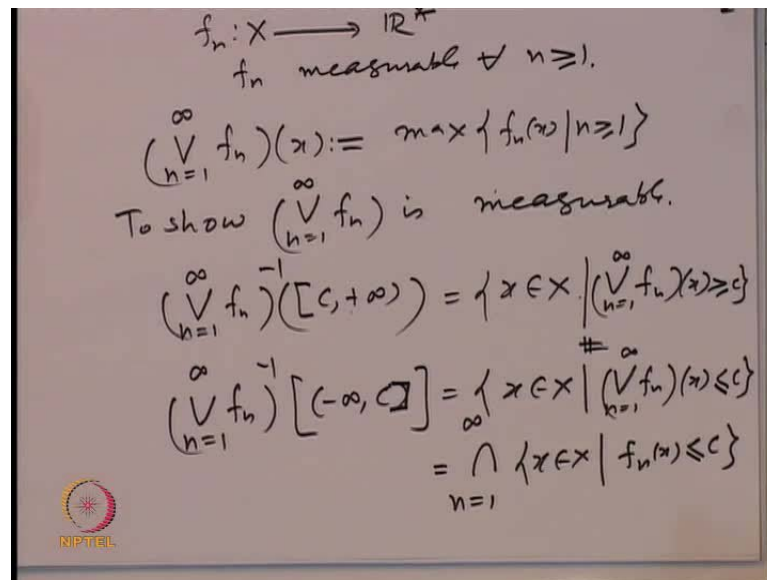 fₙ : X ⟶ ℝ*
fₙ measurable ∀ n ≥ 1.
(⋁_{n=1}^{∞} fₙ)(x) := max{fₙ(x) | n ≥ 1}
To show (⋁_{n=1}^{∞} fₙ) is measurable.
(⋁_{n=1}^{∞} fₙ)^{-1}([c, +∞)) = {x ∈ X | (⋁_{n=1}^{∞} fₙ)(x) ≥ c}
(⋁_{n=1}^{∞} fₙ)^{-1}[(-∞, c]] = {x ∈ X | (⋁_{n=1}^{∞} fₙ)(x) ≤ c}
= ⋂_{n=1}^{∞} {x ∈ X | fₙ(x) ≤ c}
NPTEL